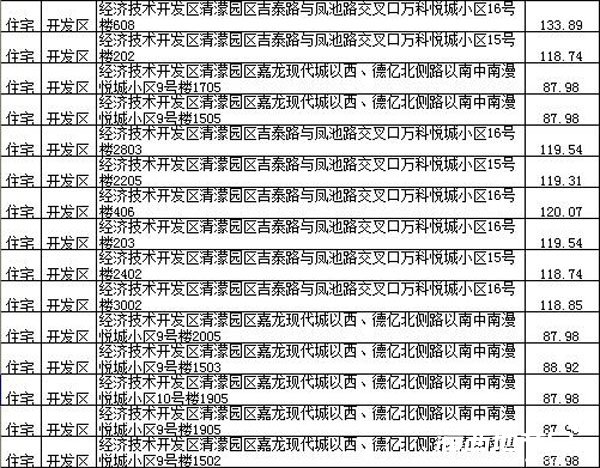 经济技术开发区清濛园区吉泰路与凤池路交叉口万科悦城小区16号
住宅 开发区 楼608 133.89
经济技术开发区清濛园区吉泰路与凤池路交叉口万科悦城小区15号
住宅 开发区 楼202 118.74
经济技术开发区清濛园区嘉龙现代城以西、德亿北侧路以南中南漫
住宅 开发区 悦城小区9号楼1705 87.98
经济技术开发区清濛园区嘉龙现代城以西、德亿北侧路以南中南漫
住宅 开发区 悦城小区9号楼1505 87.98
经济技术开发区清濛园区吉泰路与凤池路交叉口万科悦城小区16号
住宅 开发区 楼2803 119.54
经济技术开发区清濛园区吉泰路与凤池路交叉口万科悦城小区15号
住宅 开发区 楼2205 119.31
经济技术开发区清濛园区吉泰路与凤池路交叉口万科悦城小区16号
住宅 开发区 楼406 120.07
经济技术开发区清濛园区吉泰路与凤池路交叉口万科悦城小区16号
住宅 开发区 楼203 119.54
经济技术开发区清濛园区吉泰路与凤池路交叉口万科悦城小区15号
住宅 开发区 楼2402 118.74
经济技术开发区清濛园区吉泰路与凤池路交叉口万科悦城小区16号
住宅 开发区 楼3002 118.85
经济技术开发区清濛园区嘉龙现代城以西、德亿北侧路以南中南漫
住宅 开发区 悦城小区9号楼2005 87.98
经济技术开发区清濛园区嘉龙现代城以西、德亿北侧路以南中南漫
住宅 开发区 悦城小区9号楼1503 88.92
经济技术开发区清濛园区嘉龙现代城以西、德亿北侧路以南中南漫
住宅 开发区 悦城小区10号楼1905 87.98
经济技术开发区清濛园区嘉龙现代城以西、德亿北侧路以南中南漫
住宅 开发区 悦城小区9号楼1905
经济技术开发区清濛园区嘉龙现代城以西、德亿北侧路以南中南漫
住宅 开发区 悦城小区9号楼1502 87.98